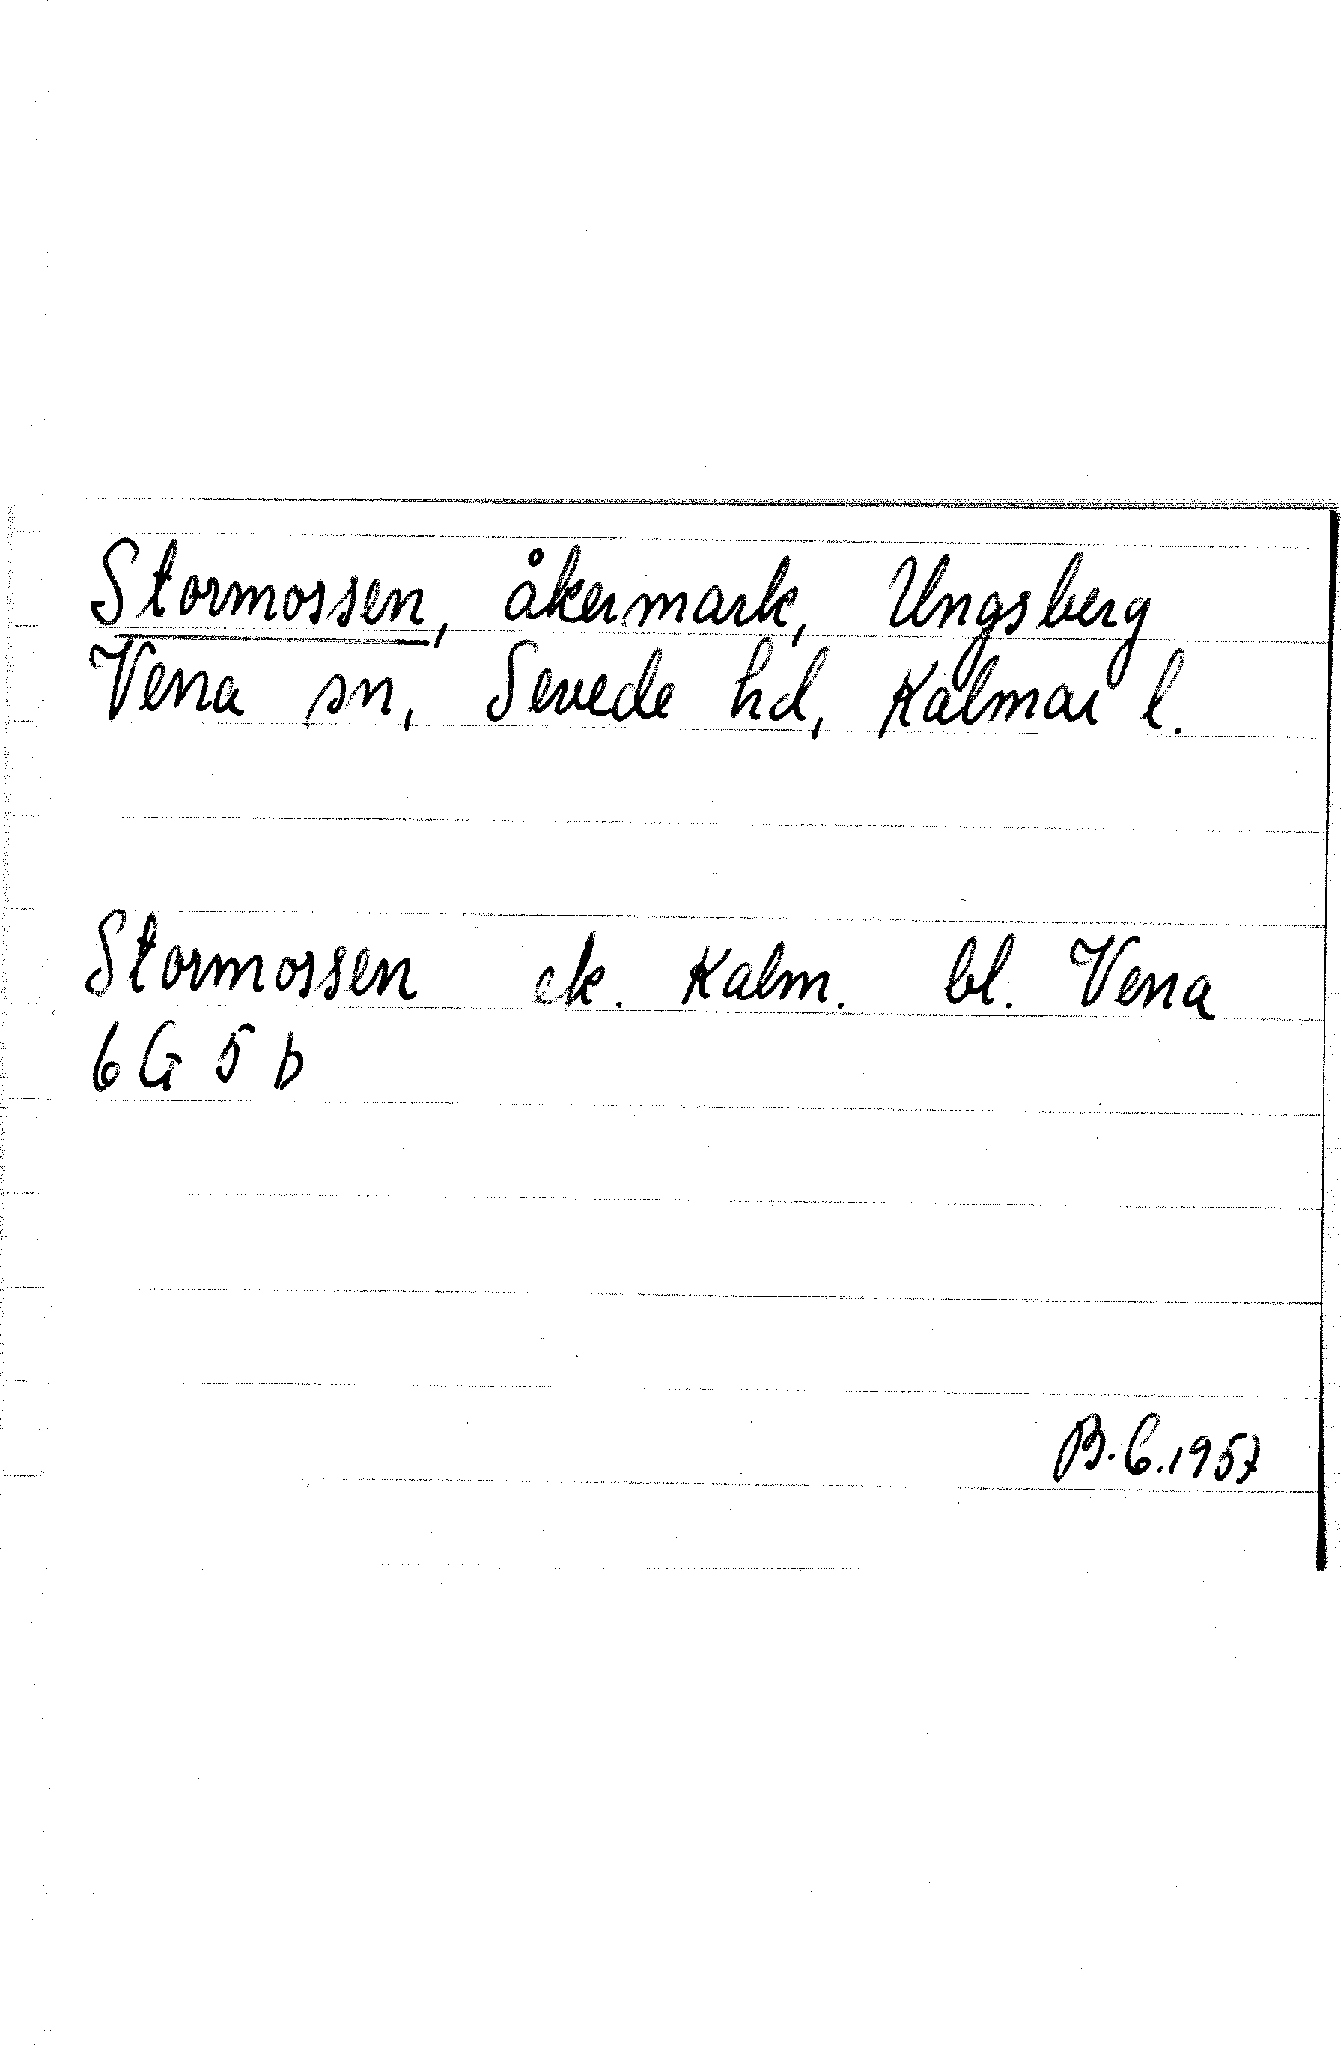 Stormossen, åkermark, Ungsberg
Vena sn, Sevede hd, Kalmar l.
Stormossen ek. Kalm. bl. Vena
6 G 5 b
B.C.1957